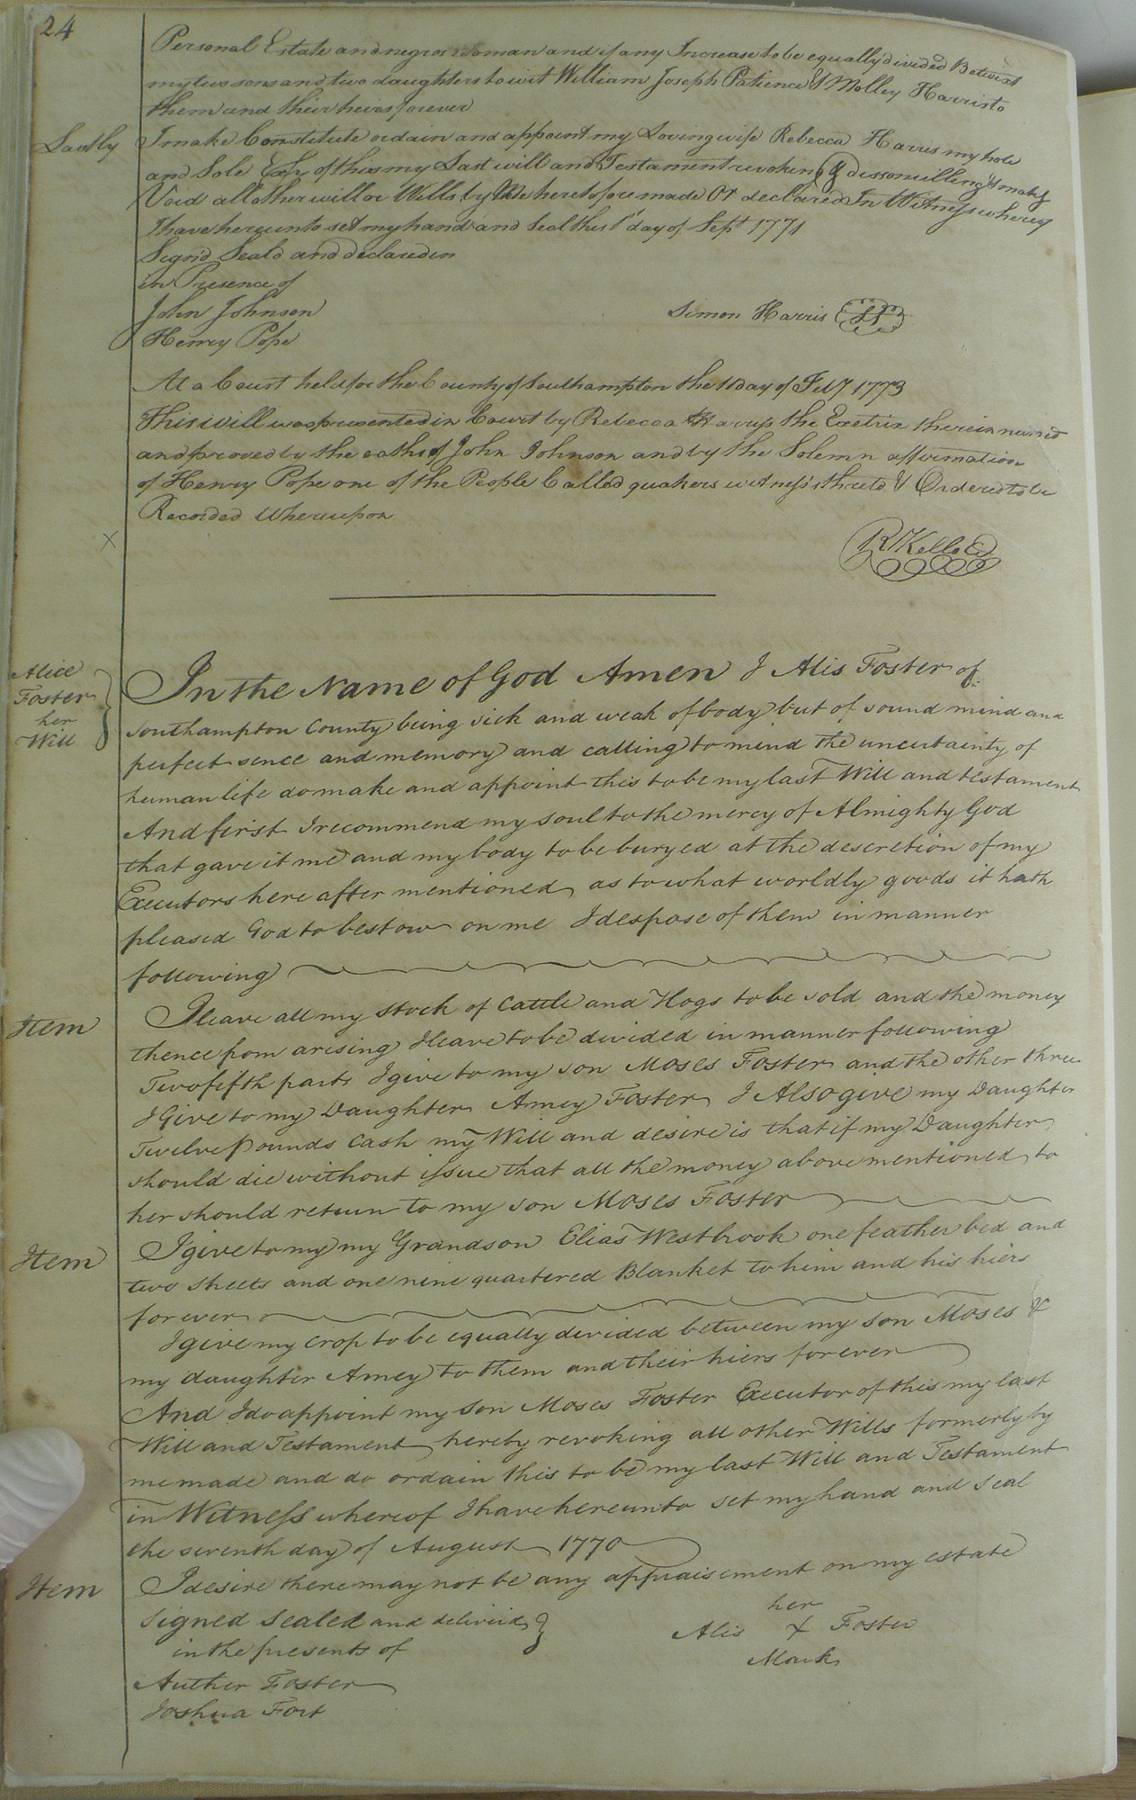 24
Personal Estate and negroe woman and if any Increase to be equally divided Betwixt
my two sons and two daughters to wit William Joseph Patience & Molley Harris to
them and their heirs forever
Lastly I make Constitute ordain and appoint my Loving wife Rebecca Harris my hole
and Sole Exr. of this my Last will and Testament revoking & dissonulling & makeg
Void all other will or Wills by Me heretofore made Or declared In Witness whereof
I have hereunto set my hand and Seal this 1st day of Sept 1771
Signd Seald and declared in
in Presence of
John Johnson
Simon Harris LS
Henry Pope
At a Court held for the County of Southampton the 11 day of Feby 1773
This will was presented in Court by Rebecca Harris the Exetrix therein named
and proved by the oaths of John Johnson and by the Solemn affirmation
of Henry Pope one of the People Called quakers witness's thereto & Ordered to be
Recorded Whereupon
R Kello
Alice
Foster
her
Will
In the Name of God Amen I Alis Foster of
Southampton County being sick and weak of body but of sound mind and
perfect sence and memory and calling to mind the uncertainty of
human life do make and appoint this to be my last Will and testament
And first I recommend my soul to the mercy of Almighty God
that gave it me and my body to be buryed at the descretion of my
Executors here after mentioned as to what worldly goods it hath
pleased God to bestow on me I despose of them in manner
following
Item I leave all my stock of Cattle and Hogs to be sold and the money
thence from arising I leave to be divided in manner following
Two fifth parts I give to my son Moses Foster and the other three
I Give to my Daughter Amey Foster I Also give my Daughter
Twelve Pounds Cash my Will and desire is that if my Daughter
should die without issue that all the money above mentioned to
her should return to my son Moses Foster
Item I give to my my Grandson Elias Westbrook one feather bed and
two sheets and one nine quartered Blanket to him and his hiers
forever
I give my crop to be equally divided between my son Moses &
my daughter Amey to them and their hiers forever
And I do appoint my son Moses Foster Executor of this my last
Will and Testament hereby revoking all other Wills formerly by
me made and do ordain this to be my last Will and Testament
in Witness whereof I have hereunto set my hand and seal
the seventh day of August 1770
Item I desire there may not be any appraisement on my estate
Signed Sealed and deliverd
in the presents of
her
Alis X Foster
Mark
Auther Foster
Joshua Fort